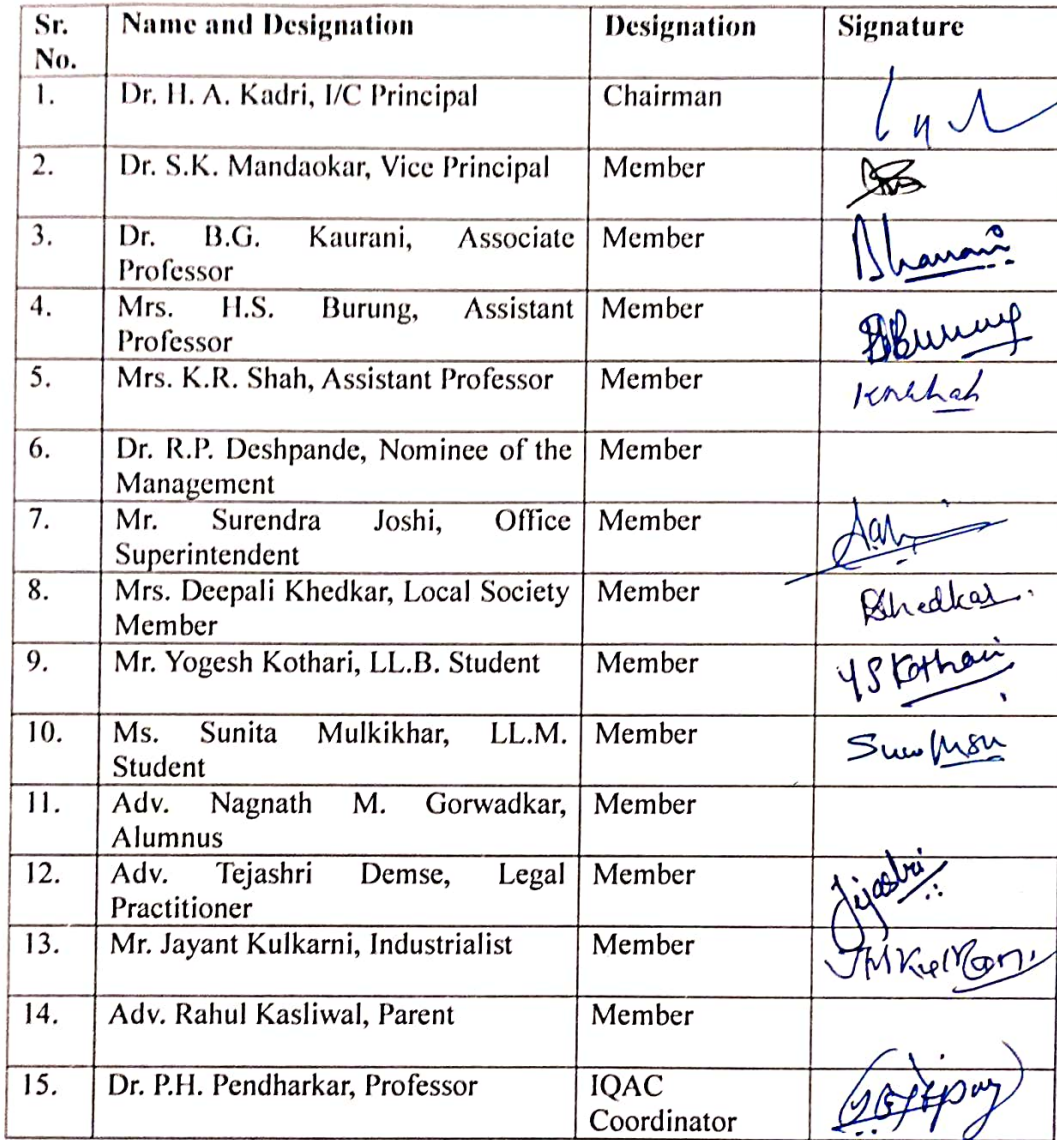 Sr. No. Name and Designation Designation Signature
1. Dr. H. A. Kadri, I/C Principal Chairman
2. Dr. S.K. Mandaokar, Vice Principal Member
3. Dr. B.G. Kaurani, Associate Professor Member
4. Mrs. H.S. Burung, Assistant Professor Member
5. Mrs. K.R. Shah, Assistant Professor Member
6. Dr. R.P. Deshpande, Nominee of the Management Member
7. Mr. Surendra Joshi, Office Superintendent Member
8. Mrs. Deepali Khedkar, Local Society Member Member
9. Mr. Yogesh Kothari, LL.B. Student Member YSKothari
10. Ms. Sunita Mulkikhar, LL.M. Student Member
11. Adv. Nagnath M. Gorwadkar, Alumnus Member
12. Adv. Tejashri Demse, Legal Practitioner Member
13. Mr. Jayant Kulkarni, Industrialist Member
14. Adv. Rahul Kasliwal, Parent Member
15. Dr. P.H. Pendharkar, Professor IQAC Coordinator